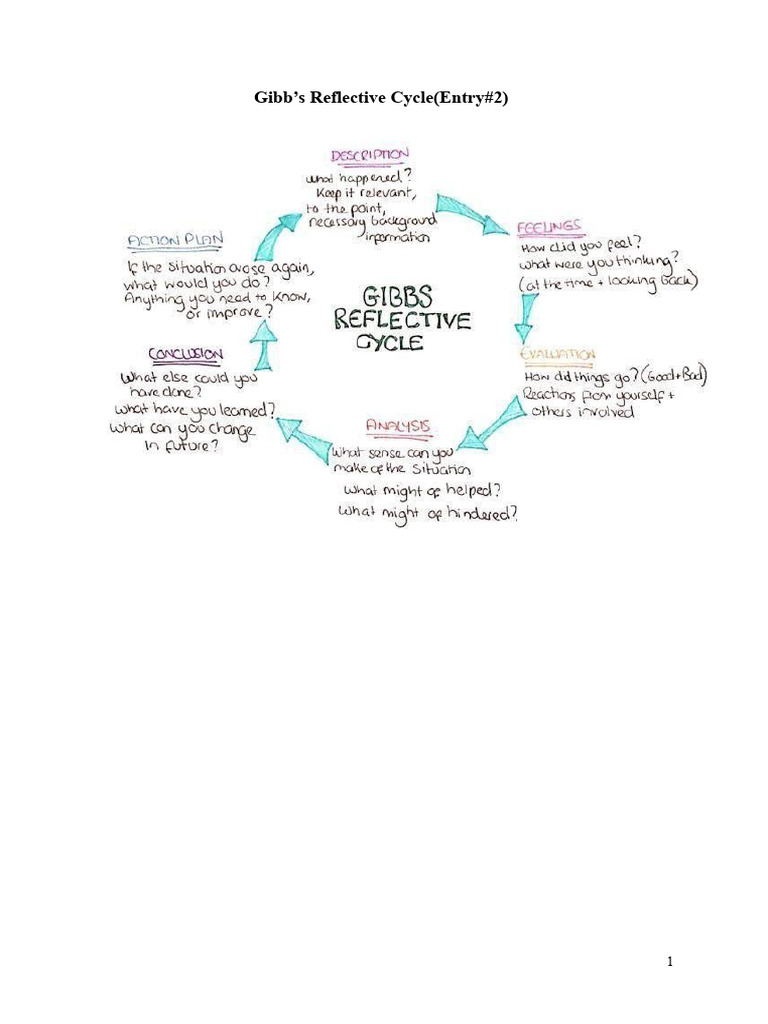 Gibb’s Reflective Cycle(Entry#2)
DESCRIPTION
What happened?
Keep it relevant,
to the point,
necessary background
information
FEELINGS
How did you feel?
What were you thinking?
(at the time + looking back)
EVALUATION
How did things go? (Good+Bad)
Reactions from yourself +
others involved
ANALYSIS
What sense can you
make of the situation
What might of helped?
What might of hindered?
CONCLUSION
What else could you
have done?
What have you learned?
What can you change
in future?
ACTION PLAN
If the situation arose again,
what would you do?
Anything you need to know,
or improve?
GIBBS
REFLECTIVE
CYCLE
1